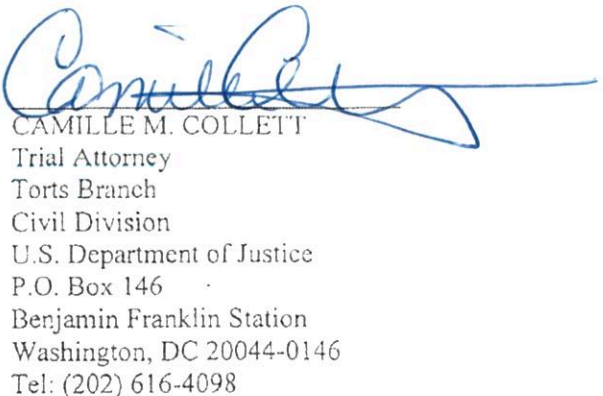 Camille Collett
CAMILLE M. COLLETT
Trial Attorney
Torts Branch
Civil Division
U.S. Department of Justice
P.O. Box 146
Benjamin Franklin Station
Washington, DC 20044-0146
Tel: (202) 616-4098